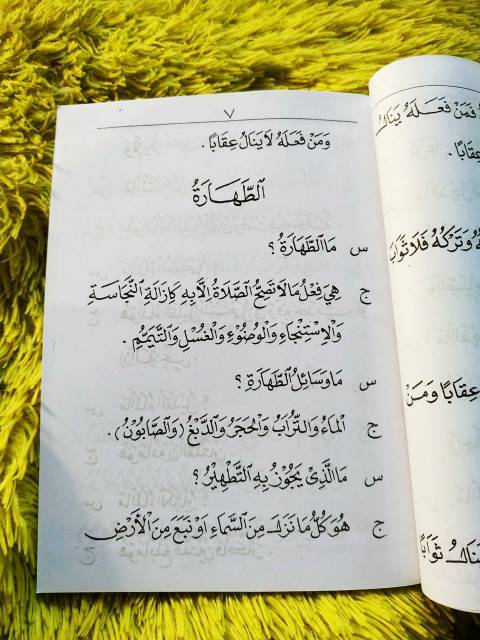 ٧
وَمَنْ فَعَلَهُ لَا يَنَالُ عِقَابًا.
اَلطَّهَارَةُ
س مَا الطَّهَارَةُ ؟
ج هِيَ فِعْلُ مَا لَا تَصِحُّ الصَّلَاةُ اِلَّا بِهِ كَاِزَالَةِ النَّجَاسَةِ
وَالْاِسْتِنْجَاءِ وَالْوُضُوْءِ وَالْغُسْلِ وَالتَّيَمُّمِ.
س مَا وَسَائِلُ الطَّهَارَةِ ؟
ج اَلْمَاءُ وَالتُّرَابُ وَالْحَجَرُ وَالدَّبْغُ (وَالصَّابُوْنُ).
س مَا الَّذِيْ يَجُوْزُ بِهِ التَّطْهِيْرُ ؟
ج هُوَ كُلُّ مَا نَزَلَ مِنَ السَّمَاءِ اَوْ نَبَعَ مِنَ الْاَرْضِ
فَمَنْ فَعَلَهُ يَنَالُ
عِقَابًا.
وَتَرْكُهُ فَلَا ثَوَابَ
عِقَابًا وَمَنْ
ثَوَابًا